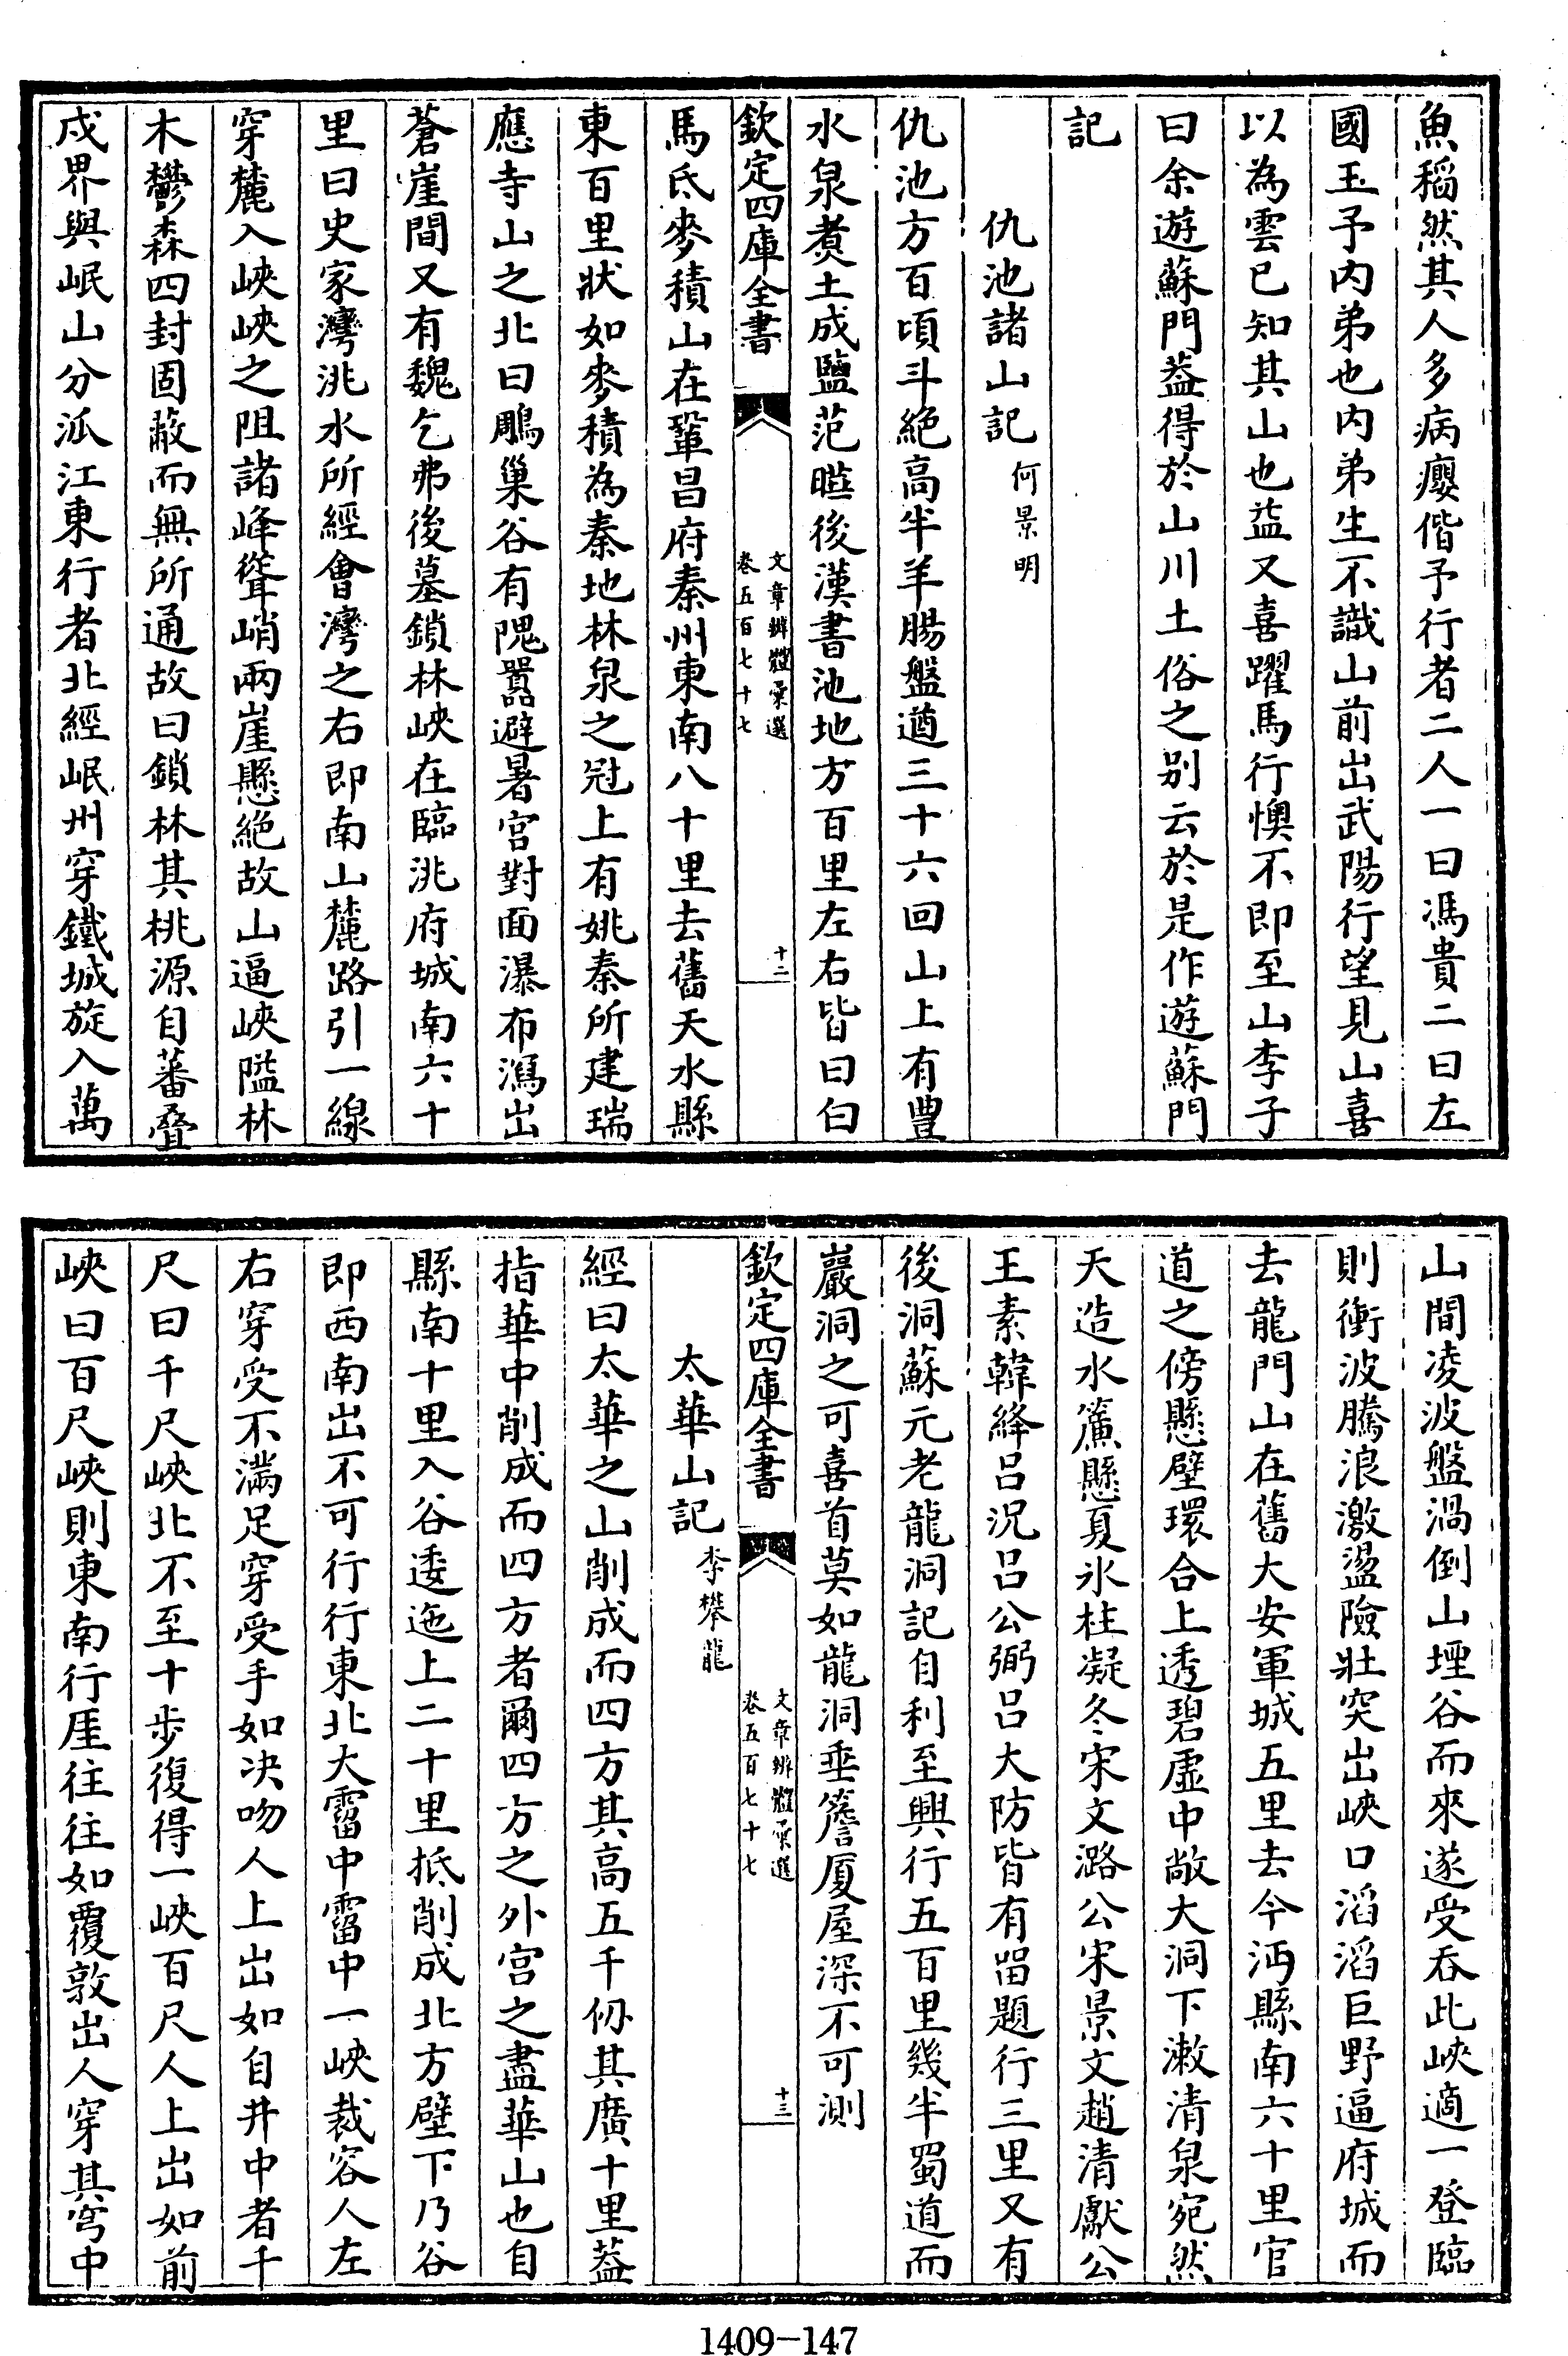 魚稻然其人多病癭偕予行者二人一曰馮貴二曰左
國玉予内弟也内弟生不識山前出武陽行望見山喜
以為雲已知其山也益又喜躍馬行懊不即至山李子
曰余遊蘇門葢得於山川土俗之别云於是作遊蘇門
記
仇池諸山記何景明
仇池方百頃斗絶高半羊腸盤遒三十六回山上有豐
水泉煑土成鹽范曄後漢書池地方百里左右皆曰白
欽定四庫全書
文章辨體彙選
卷五百七十七
十二
馬氐麥積山在鞏昌府秦州東南八十里去舊天水縣
東百里狀如麥積為秦地林泉之冠上有姚秦所建瑞
應寺山之北曰鵰巢谷有隗囂避暑宫對面瀑布瀉出
蒼崖間又有魏乞弗後墓鎖林峽在臨洮府城南六十
里曰史家灣洮水所經會灣之右即南山麓路引一線
穿麓入峽峽之阻諸峰聳峭兩崖懸絶故山逼峽隘林
木鬱森四封固蔽而無所通故曰鎖林其桃源自蕃叠
戍界與岷山分派江東行者北經岷州穿鐵城旋入萬
山間凌波盤渦倒山堙谷而來遂受吞此峽適一登臨
則衝波騰浪激盪險壯突出峽口滔滔巨野逼府城而
去龍門山在舊大安軍城五里去今沔縣南六十里官
道之傍懸壁環合上透碧虚中敞大洞下漱清泉宛然
天造水簾懸夏氷柱凝冬宋文潞公宋景文趙清獻公
王素韓絳吕況吕公弼吕大防皆有畱題行三里又有
後洞蘇元老龍洞記自利至興行五百里幾半蜀道而
巖洞之可喜首莫如龍洞垂簷厦屋深不可測
欽定四庫全書
文章辨體彙選
卷五百七十七
十三
太華山記李攀龍
經曰太華之山削成而四方其高五千仞其廣十里葢
指華中削成而四方者爾四方之外宫之盡華山也自
縣南十里入谷逶迤上二十里抵削成北方壁下乃谷
即西南出不可行行東北大霤中霤中一峽裁容人左
右穿受不滿足穿受手如决吻人上出如自井中者千
尺曰千尺峽北不至十步復得一峽百尺人上出如前
峽曰百尺峽則東南行厓往往如覆敦出人穿其穹中
1409-147